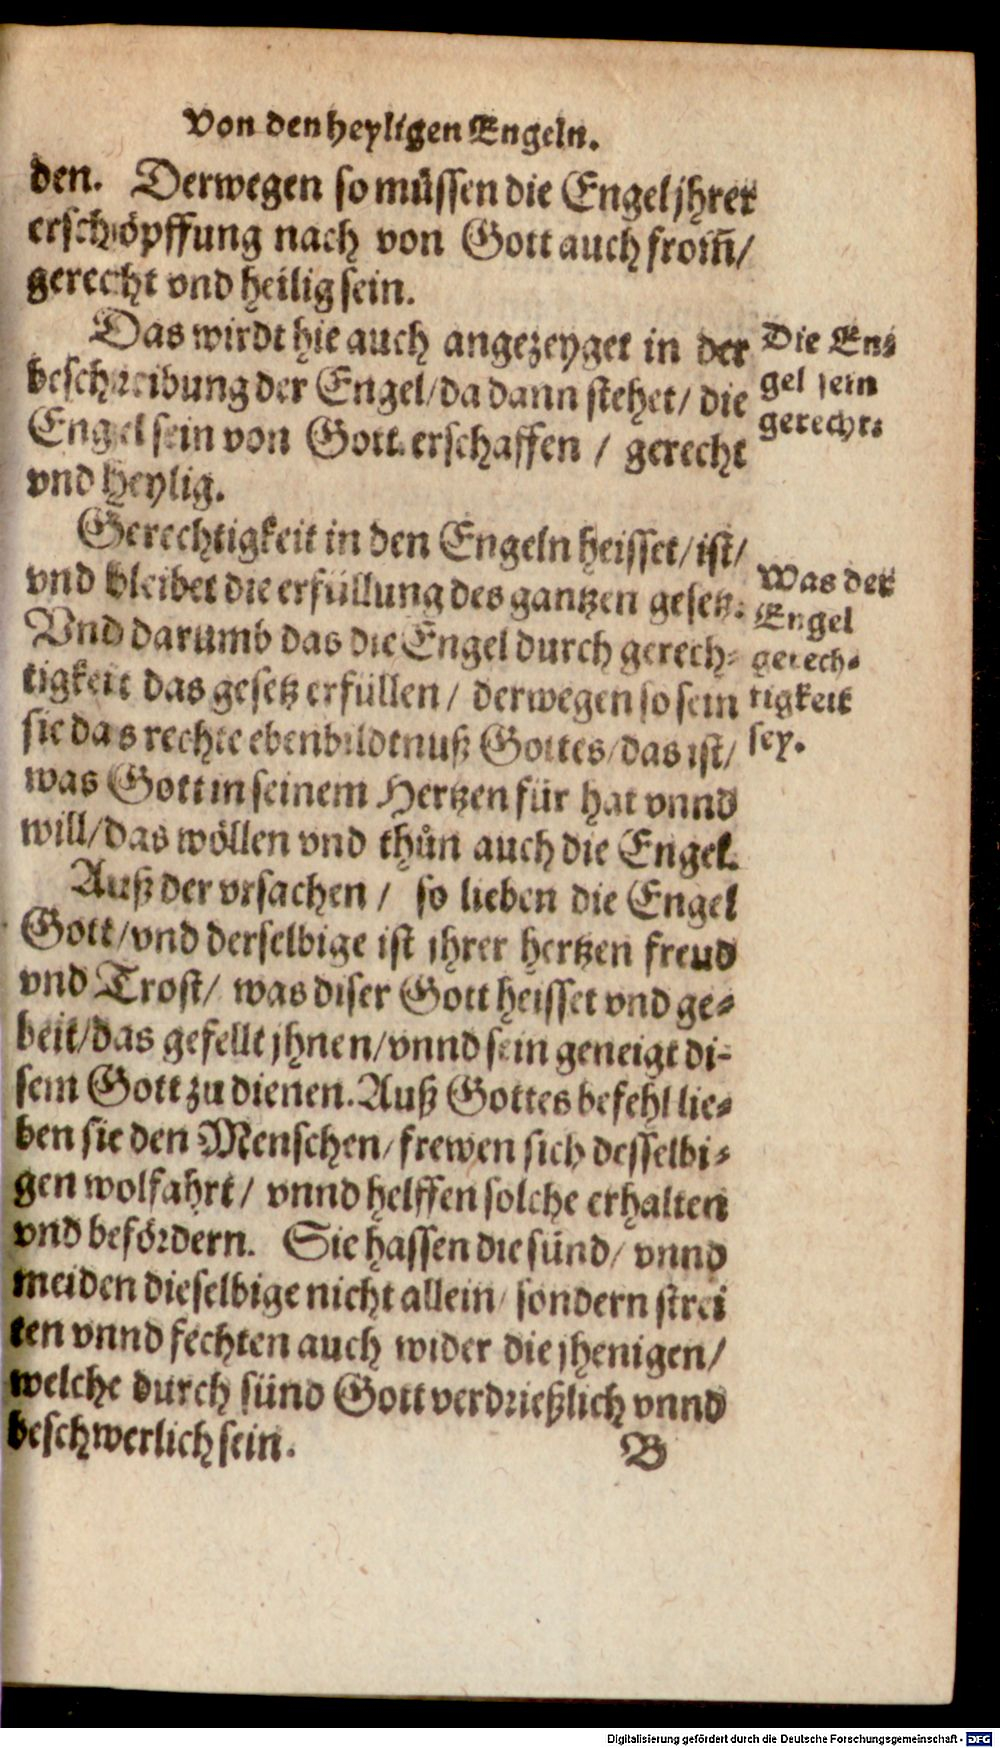 Von den heyligen Engeln.
den. Derwegen so müssen die Engel jhrer
erschöpffung nach von Gott auch from̃/
gerecht vnd heilig sein.
Das wirdt hie auch angezeyget in der
beschreibung der Engel/da dann stehet/ die
Engel sein von Gott erschaffen / gerecht
vnd heylig.
Die En⸗
gel sein
gerecht.
Gerechtigkeit in den Engeln heisset/ist/
vnd bleibet die erfüllung des gantzen gesetz.
Vnd darumb das die Engel durch gerech⸗
tigkeit das gesetz erfüllen/ derwegen so sein
sie das rechte ebenbildtnuß Gottes/das ist/
was Gott in seinem Hertzen für hat vnnd
will/das wöllen vnd thůn auch die Engel.
Was der
Engel
gerech⸗
tigkeit
sey.
Auß der vrsachen / so lieben die Engel
Gott/vnd derselbige ist jhrer hertzen freud
vnd Trost/ was diser Gott heisset vnd ge⸗
beit/das gefellt jhnen/vnnd sein geneigt di⸗
sem Gott zu dienen. Auß Gottes befehl lie⸗
ben sie den Menschen/frewen sich desselbi⸗
gen wolfahrt/ vnnd helffen solche erhalten
vnd befördern. Sie hassen die sünd/ vnnd
meiden dieselbige nicht allein/ sondern strei
ten vnnd fechten auch wider die jhenigen/
welche durch sünd Gott verdrießlich vnnd
beschwerlich sein.
B
Digitalisierung gefördert durch die Deutsche Forschungsgemeinschaft - DFG